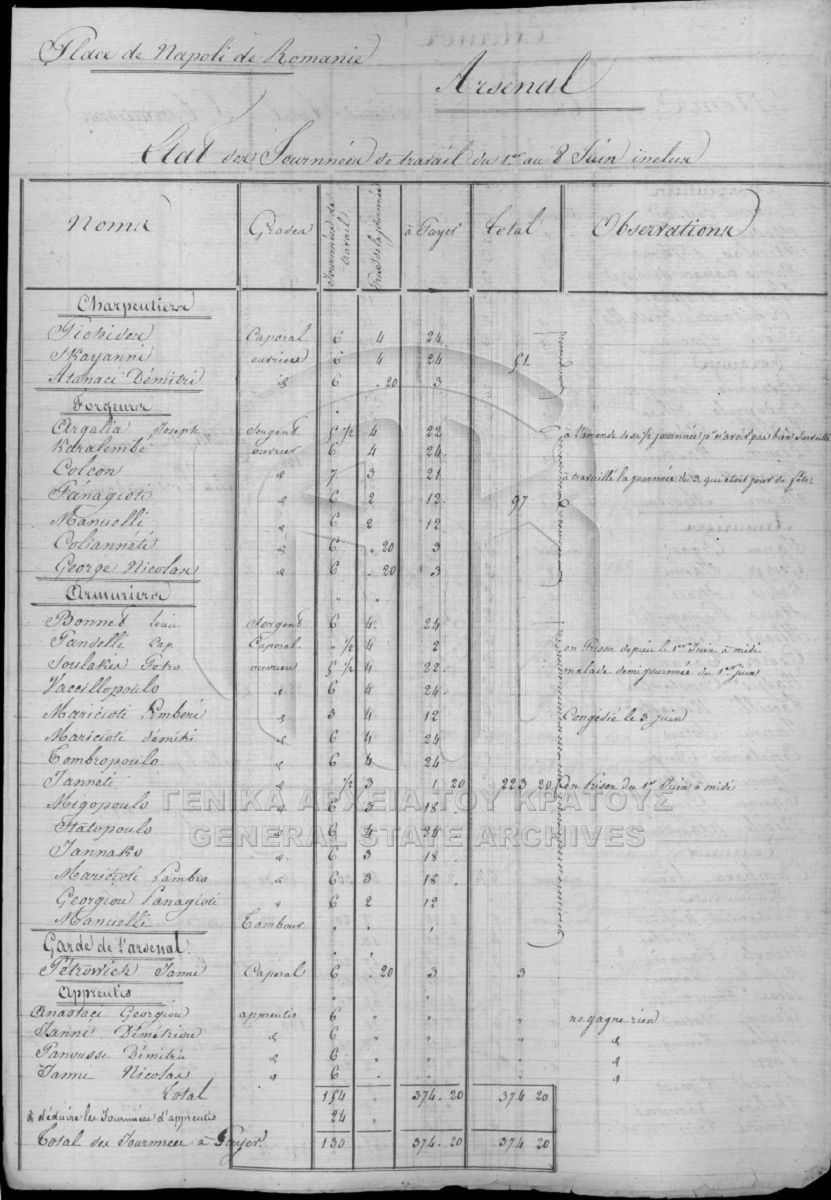 Place de Napoli de Romanie
Arsenal
Etat des Journnées de travail du 1.er au 8 Juin inclus
Noms Grades Journnées de travail Prix de la journnée à Payer total Observations
Charpentiers
Pichidou Caporal 6 4 24.
Skayanni ouvriers 6 4 24 51.
Atanaci Démitri id 6 . 20 3
Forgeurs
Argalia Joseph Sergent 5 1/2 4 22 à l'amende de sa 1/2 journnée p.r n'avoir pas bien surveillé
Karalembe ouvrier 6 4 24.
Colcon id 7 3 21 à travaillé la journnée du 3 qui était jour de fête.
Panagioti id 6 2 12. 97
Manuelli id 6 2 12
Coliannéti id 6 . 20 3
George Nicolas id 6 . 20 3
Armuriers
Bonnet Louis Sergent 6 4. 24
Pandelli Cap. Caporal " 1/2 4 2 en Prison depuis le 1.er Juin à midi
Soulakis Petro ouvriers 5 1/2 4 22. malade demi journnée du 1.er juin
Vaccillopoulo id 6 4 24.
Maricioti Limbéri id 3 4 12 Congédié le 3 juin
Maricioti démitri id 6 4 24
Tombropoulo id 6 4 24
Janneti id 1/2 3 1 20 223 20 en Prison du 1.er Juin à midi
Migopoulo id 6 3 18.
Statopoulo id 6 4 24
Jannako id 6 3 18
Maricioti Lambro id 6 3 18
Georgiou Panagioti " 6 2 12
Manuelli Tambour " " "
Garde de l'arsenal.
Pétrowick Janni Caporal 6 . 20 3 3
Apprentis
Anastaci Georgiou apprentis 6 " " " ne gagne rien
Janni Démitriou id 6 " " " id
Panousse Démitri id 6 " " " id
Janni Nicolas id 6 . . . id
total 154 . 374. 20 374 20
à déduire les Journnées d'apprentis 24
Total des Journnées à Payer 130 374. 20 374 20
ΓΕΝΙΚΑ ΑΡΧΕΙΑ ΤΟΥ ΚΡΑΤΟΥΣ
GENERAL STATE ARCHIVES